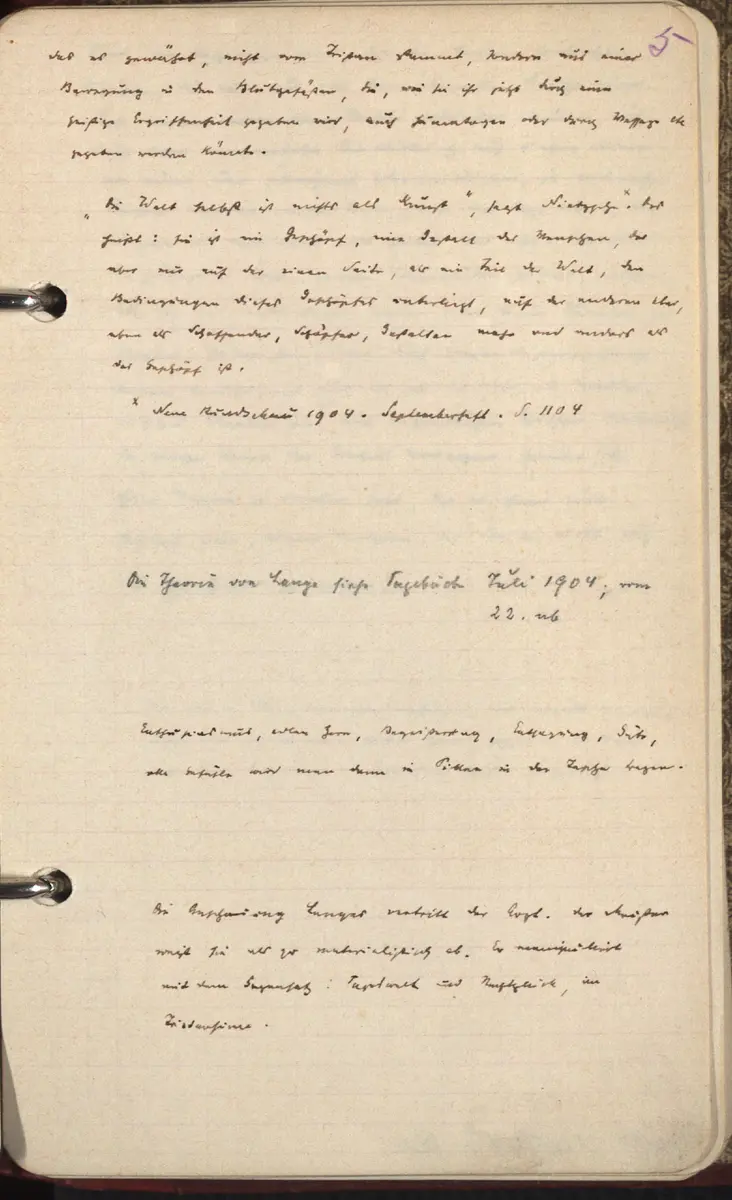 5
das es gewährt, nicht vom Tristan stammt, sondern aus einer
Bewegung in den Blutgefäßen, die, wie sie ihr jetzt durch eine
geistige Ergriffenheit gegeben wird, auch oder durch Massage etc
gegeben werden könnte.
„Die Welt selbst ist nichts als Kunst“, sagt Nietzsche.x Das
heißt: sie ist ein Geschöpf, eine Gestalt des Menschen, der
aber nur auf der einen Seite, als ein Teil der Welt, den
Bedingungen dieses Geschöpfes unterliegt, auf der anderen aber,
eben als Schaffender, Schöpfer, Gestalter mehr und anders als
das Geschöpf ist.
x Neue Rundschau 1904. Septemberheft. S. 1104
Die Theorie von Lange siehe Tagebuch Juli 1904, vom
22. ab
Enthusiasmus, edlen Zorn, Begeisterung, Entsagung, Güte,
alle Gefühle wird man dann in Pillen in der Tasche tragen.
Die Anschauung Langes vertritt der Arzt. Der Meister
weist sie als zu materialistisch ab. Er
mit dem Gegensatz: Tageswelt und, im
Tristansinne.